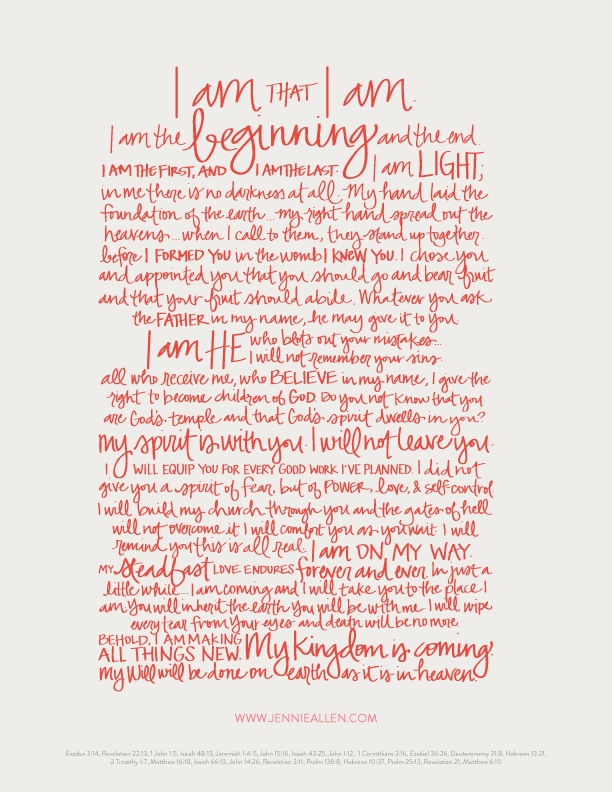 I am THAT I am.
I am the beginning and the end.
I AM THE FIRST, AND I AM THE LAST. I am LIGHT;
in me there is no darkness at all. My hand laid the
foundation of the earth...my right hand spread out the
heavens...when I call to them, they stand up together.
before I FORMED YOU in the womb I KNEW YOU. I chose you
and appointed you that you should go and bear fruit
and that your fruit should abide. Whatever you ask
the FATHER in my name, he may give it to you.
I am HE who blots out your mistakes...
I will not remember your sins.
all who receive me, who BELIEVE in my name, I give the
right to become children of GOD. Do you not know that you
are God's temple and that God's spirit dwells in you?
my spirit is with you. I will not leave you.
I WILL EQUIP YOU FOR EVERY GOOD WORK I'VE PLANNED. I did not
give you a spirit of fear, but of POWER, love, & self-control
I will build my church through you and the gates of hell
will not overcome it. I will comfort you as you wait. I will
remind you this is all real. I am ON MY WAY.
MY steadfast LOVE ENDURES forever and ever. In just a
little while...I am coming and I will take you to the place I
am. You will inherit the earth. You will be with me. I will wipe
every tear from your eyes and death will be no more.
BEHOLD, I AM MAKING
ALL THINGS NEW. My Kingdom is coming.
My Will will be done on earth as it is in heaven.
WWW.JENNIEALLEN.COM
Exodus 3:14, Revelation 22:13, 1 John 1:5, Isaiah 48:13, Jeremiah 1:4-5, John 15:16, Isaiah 43:25, John 1:12, 1 Corinthians 3:16, Ezekiel 36:26, Deuteronomy 31:8, Hebrews 13:21,
2 Timothy 1:7, Matthew 16:18, Isaiah 66:13, John 14:26, Revelation 3:11, Psalm 138:8, Hebrews 10:37, Psalm 25:13, Revelation 21, Matthew 6:10